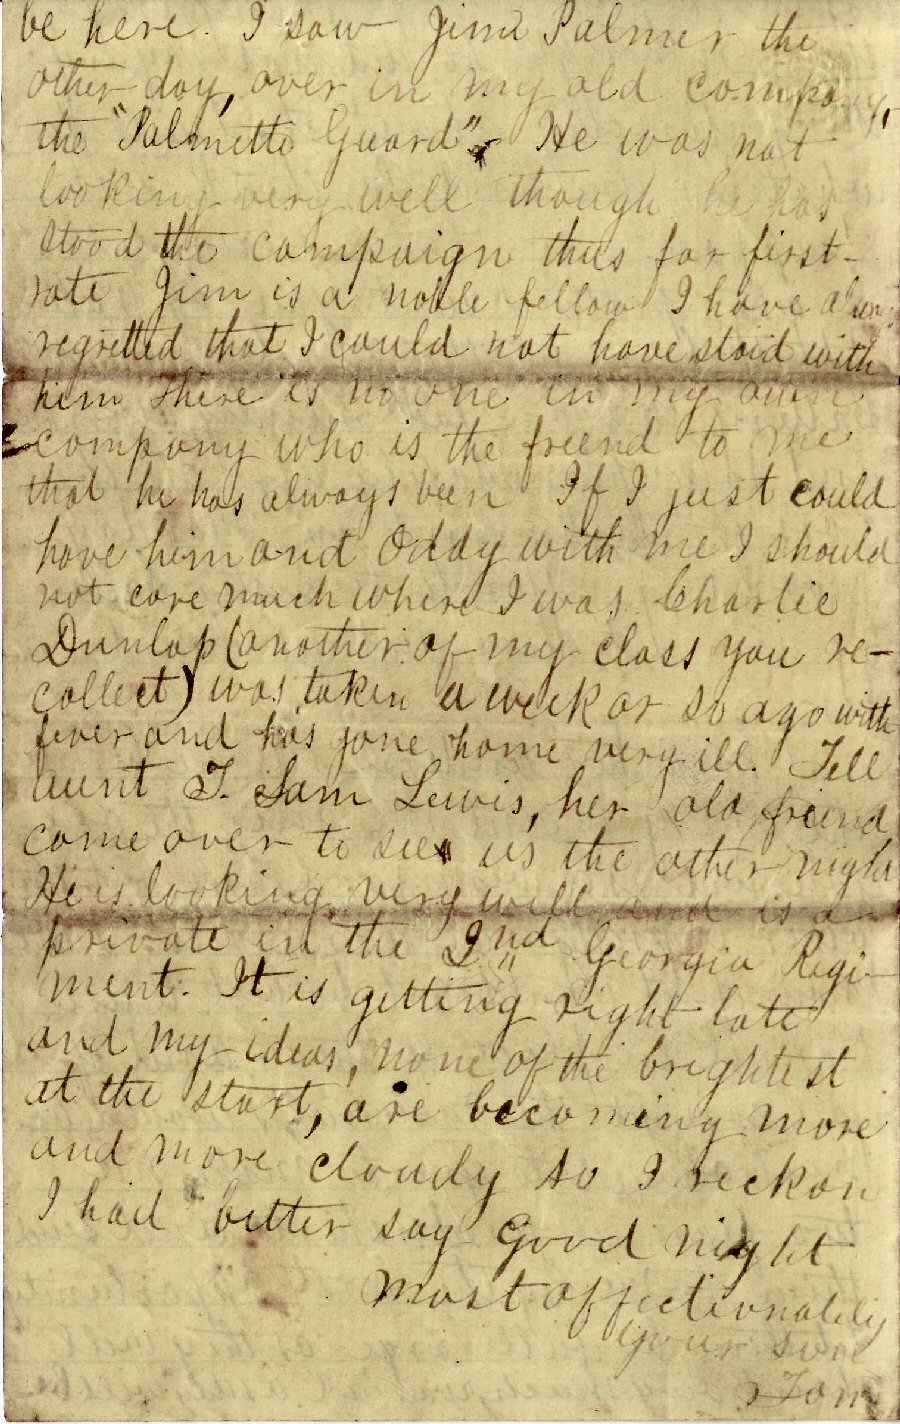 be here. I saw Jim Palmer the
other day, over in my old company,
the "Palmetto Guard". He was not
looking very well though he has
stood the campaign thus far first-
rate Jim is a noble fellow I have
regretted that I could not have staid with
him There is no one in my own
company who is the friend to me
that he has always been If I just could
have him and Oddy with me I should
not care much where I was. Charlie
Dunlap (another of my class you re-
collect) was taken a week or so ago with
fever and has gone home very ill. Tell
aunt T. Sam Lewis, her old friend,
came over to see us the other night
He is looking very well and is a
private in the 2nd Georgia Regi-
ment. It is getting right late
and my ideas, none of the brightest
at the start, are becoming more
and more cloudy so I reckon
I had better say Good night
Most affectionately
Your son
Tom